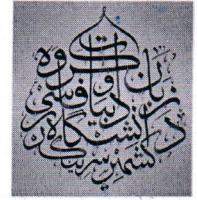 گروه زبان
و ادبیات فارسی
دانشگاه
کشمیر سرینگر